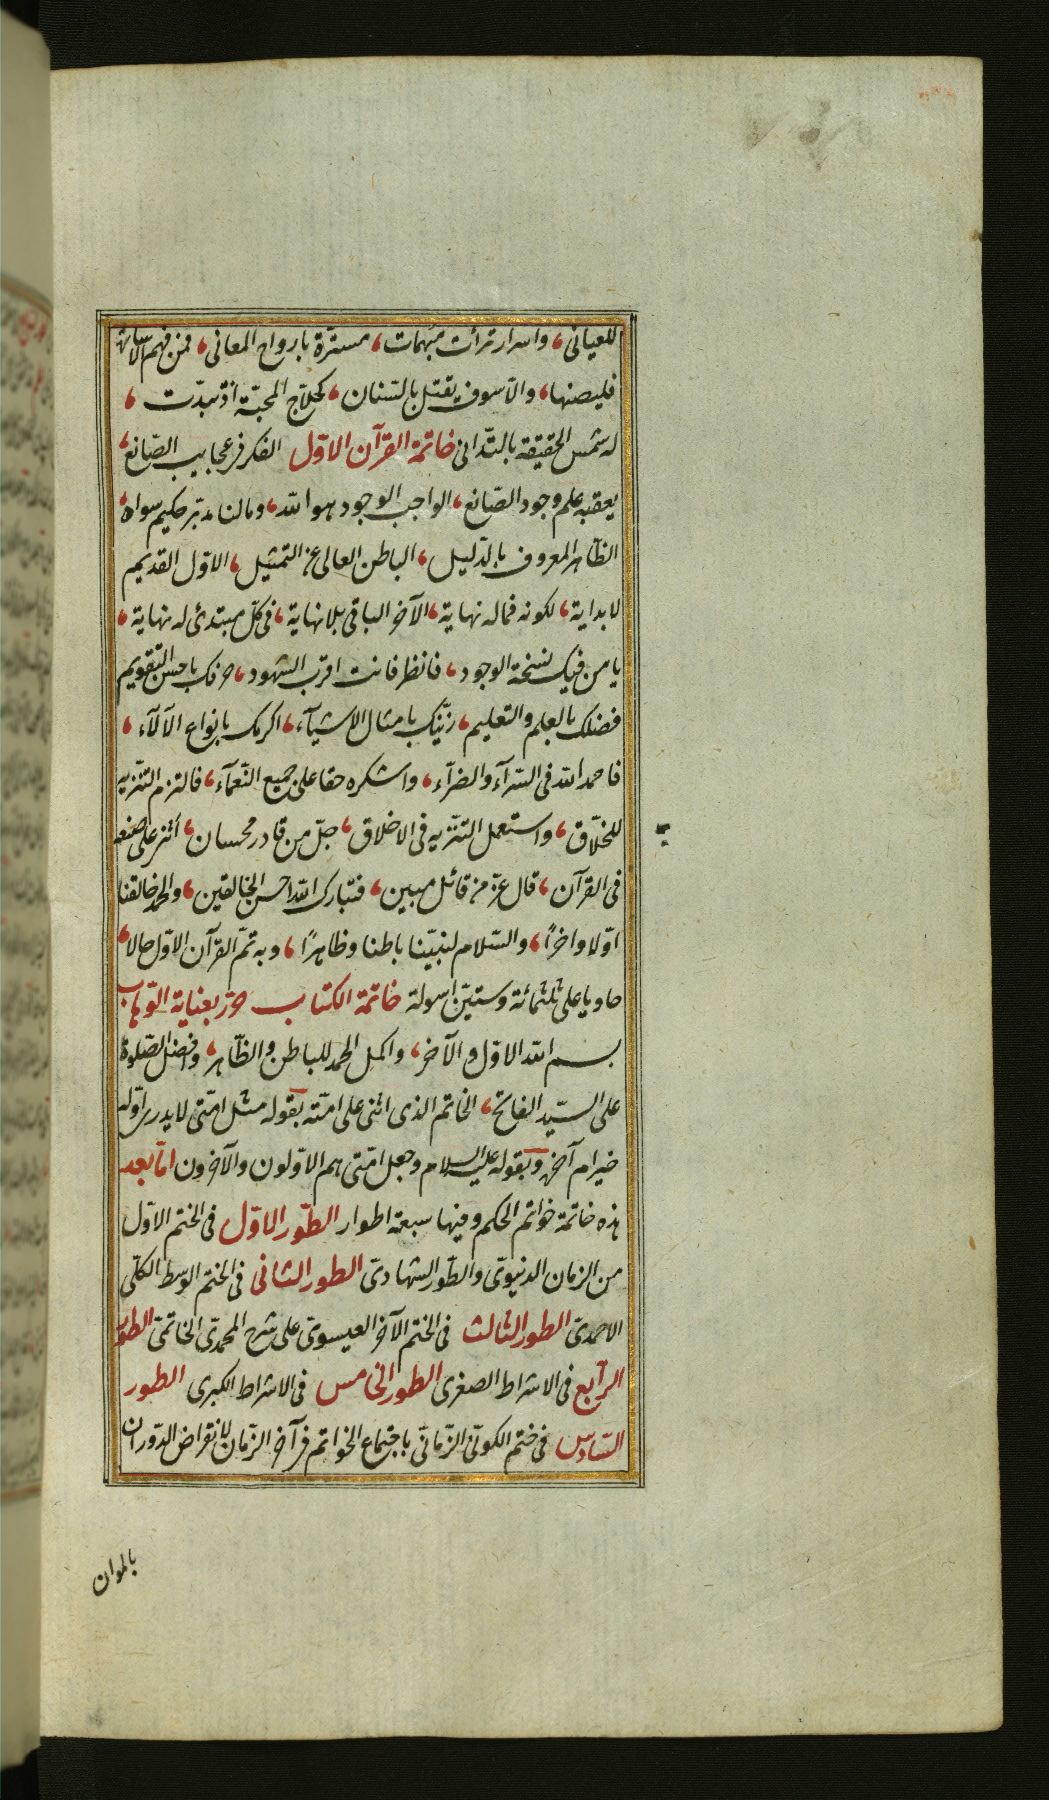 للعيانى، واسرار ترأت مبهمات، مسترّة بارواح المعانى، فمن فهم الاشارة
فليصنها، والاّ سوف يقتل بالسّنان، كحلاّج المحبّة اذ تبدّت،
له شمس الحقيقة بالتّدانى خاتمة القرآن الاوّل الفكر فى عجايب الصّانع،
يعقبه علم وجود الصّانع، الواجب الوجود هو الله، ومالنا مدبّر حكيم سواه،
الظّاهر المعروف بالدّليل، الباطن العالى عن التمثيل، الاوّل القديم
لا بداية، لكونه فماله نهاية، الآخر الباقى بلا نهاية، فى كلّ مبتدئ له نهاية،
يا من فيك نسخة الوجود، فانظر فانت اقرب الشهود، صرفك باحسن التقويم
فضلك بالعلم والتعليم، زيّنك بامثال الاشيآء، اكرمك بانواع الآلآء،
فاحمد الله فى السّرآء والضرآء، واشكره حقا على جميع النّعمآء، فالتزم التنزيه
للخلاّق، واستعمل التنزيه فى الاخلاق، جلّ من قادر محسان، أثنى على صنعه
فى القرآن، قال عزّ من قائل مبين، فتبارك الله احسن الخالقين، والحمد خالقنا
اوّلا واخرًا، والسّلام لنبيّنا باطنا وظاهرًا، وبه تمّ القرآن الاوّل حالا،
حاويا على ثلثمائة وستيّن اسولة خاتمة الكتاب حرّر بعناية الوهاب
بسم الله الاوّل والآخر، واكمل الحمد للباطن والظّاهر، وافضل الصّلوة
على السّيد الفاتح، الخاتم الذى اثنى على امّته بقوله مثل امّتى لا يدرى اوّله
خير ام آخره وبقوله عليه السلام وجعل امّتى هم الاوّلون والآخرون امّا بعد
هذه خاتمة خواتم الحكم وفيها سبعة اطوار الطّور الاوّل فى الختم الاوّل
من الزمان الدنيوىّ والطّور الشهادىّ الطور الثانى فى الختم الوسط الكلّى
الاحمدىّ الطور الثالث فى الختم الآخر العيسوىّ على شرح المحمدىّ الخاتمىّ الطور
الرّابع فى الاشراط الصغرى الطور الخامس فى الاشراط الكبرى الطور
السّادس فى ختم الكونىّ الزّمانىّ باجتماع الخواتم فى آخر الزمان لانقراض الدّوران
بالموان